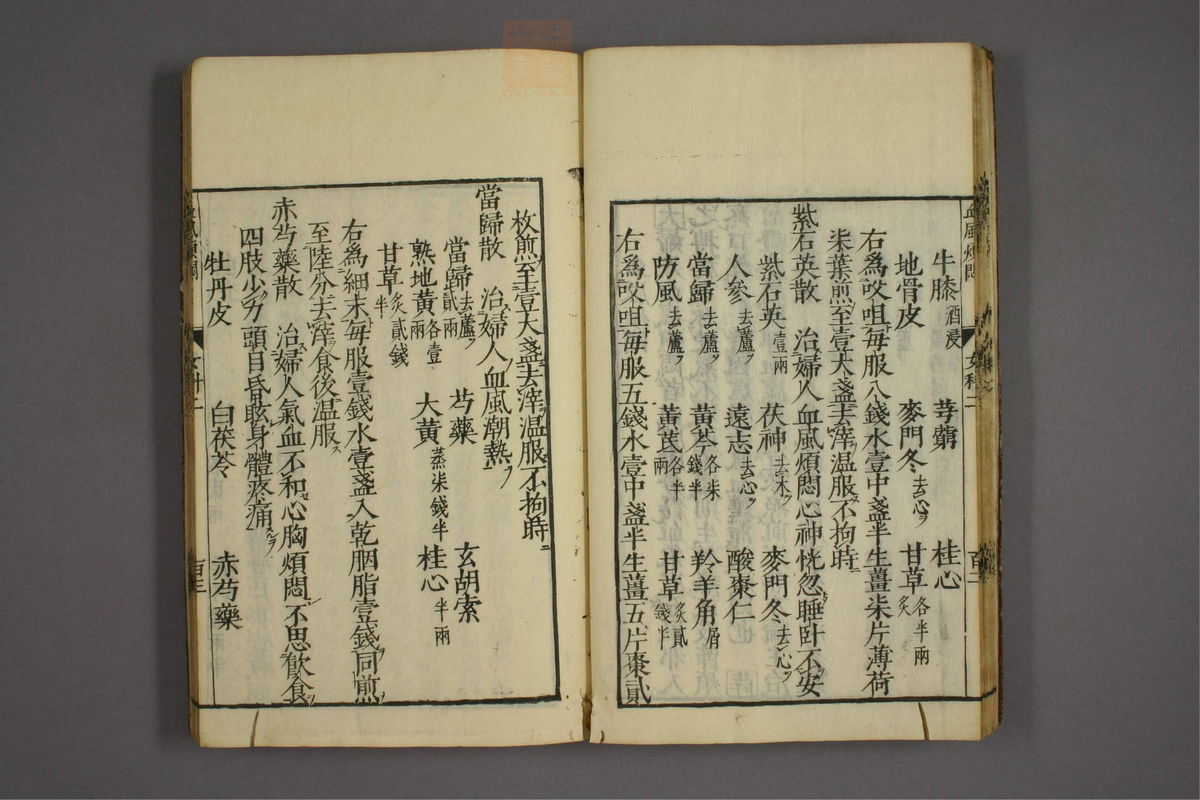 牛膝酒浸 莩藭 桂心
地骨皮 麥門冬去心ヲ 甘草炙各半兩
右爲㕮咀每服八錢水壹中盞半生薑柒片薄荷
柒葉煎至壹大盞去滓溫服不拘時ニ
紫石英散 治婦人血風煩悶心神恍忽睡卧不安
紫石英壹兩 茯神去木ヲ 麥門冬去心ヲ
人參去蘆ヲ 遠志去心ヲ 酸棗仁
當歸去蘆ヲ 黃芩各柒錢半 羚羊角屑
防風去蘆ヲ 黃茋各半兩 甘草炙貳錢半
右爲㕮咀每服五錢水壹中盞半生薑五片棗貳
血風煩悶 女科二 百二
枚煎至壹大盞去滓溫服不拘時ニ
當歸散 治婦人血風潮熱ヲ
當歸去蘆ヲ貳兩 芍藥 玄胡索
熟地黃各壹兩 大黃蒸柒錢半 桂心半兩
甘草炙貳錢半
右爲細末每服壹錢水壹盞入乾胭脂壹錢同煎
至陸分去滓食後溫服ス
赤芍藥散 治婦人氣血不和心胸煩悶不思飲食
四肢少力頭目昏眩身體疼痛スルヲ
牡丹皮 白茯苓 赤芍藥
血風煩悶 女科二 百三